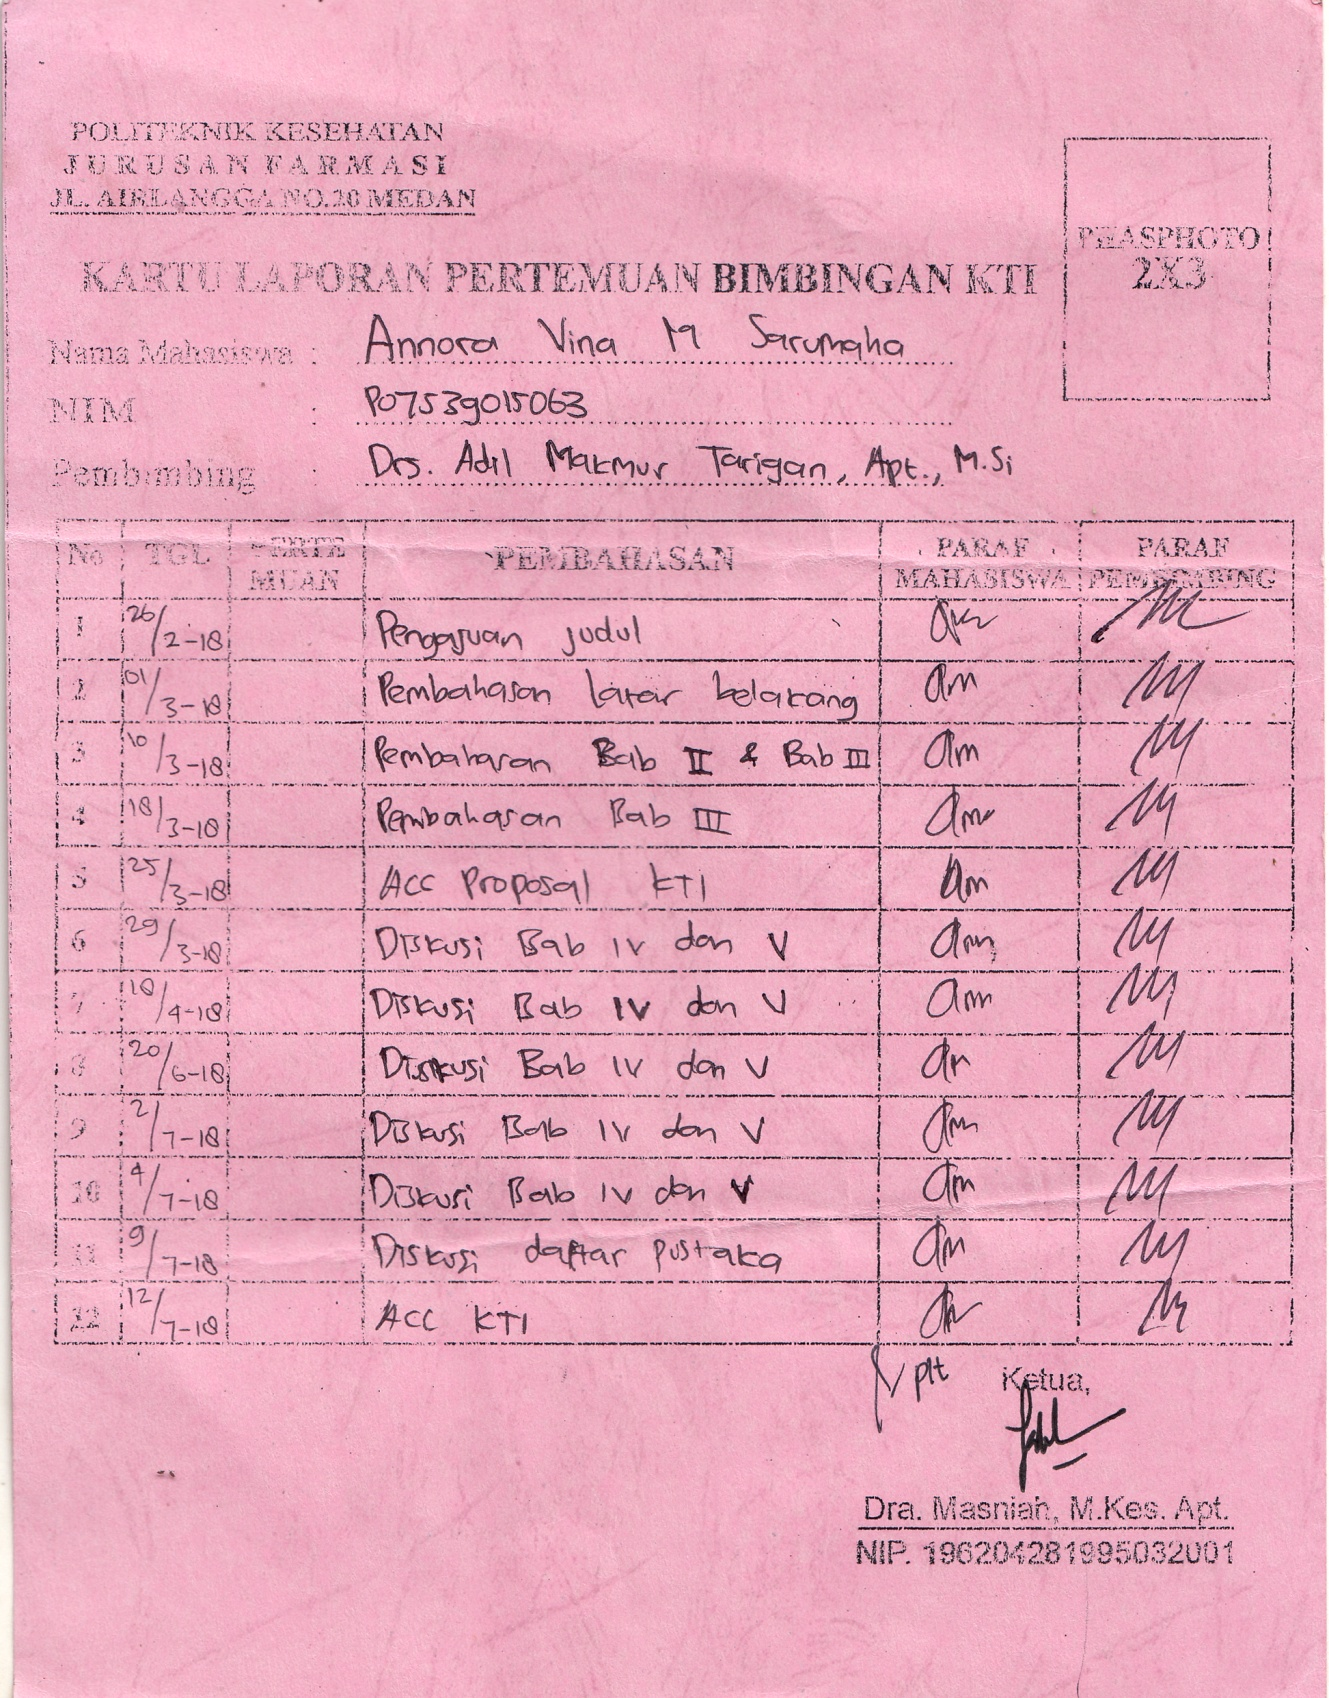 POLITEKNIK KESEHATAN
JURUSAN FARMASI
JL. AIRLANGGA NO.20 MEDAN
PHASPHOTO
2X3
KARTU LAPORAN PERTEMUAN BIMBINGAN KTI
Nama Mahasiswa : Annora Vina M Sarumaha
NIM : P07539015063
Pembimbing : Drs. Adil Makmur Tarigan, Apt., M.Si
No TGL PERTEMUAN PEMBAHASAN PARAF MAHASISWA PARAF PEMBIMBING
1 26/2-18 Pengajuan judul
2 01/3-18 Pembahasan latar belakang
3 10/3-18 Pembahasan Bab II & Bab III
4 18/3-18 Pembahasan Bab III
5 25/3-18 ACC Proposal KTI
6 29/3-18 Diskusi Bab IV dan V
7 18/4-18 Diskusi Bab IV dan V
8 20/6-18 Diskusi Bab IV dan V
9 2/7-18 Diskusi Bab IV dan V
10 4/7-18 Diskusi Bab IV dan V
11 9/7-18 Diskusi daftar pustaka
12 12/7-18 ACC KTI
plt Ketua,
Dra. Masniah, M.Kes. Apt.
NIP. 196204281995032001